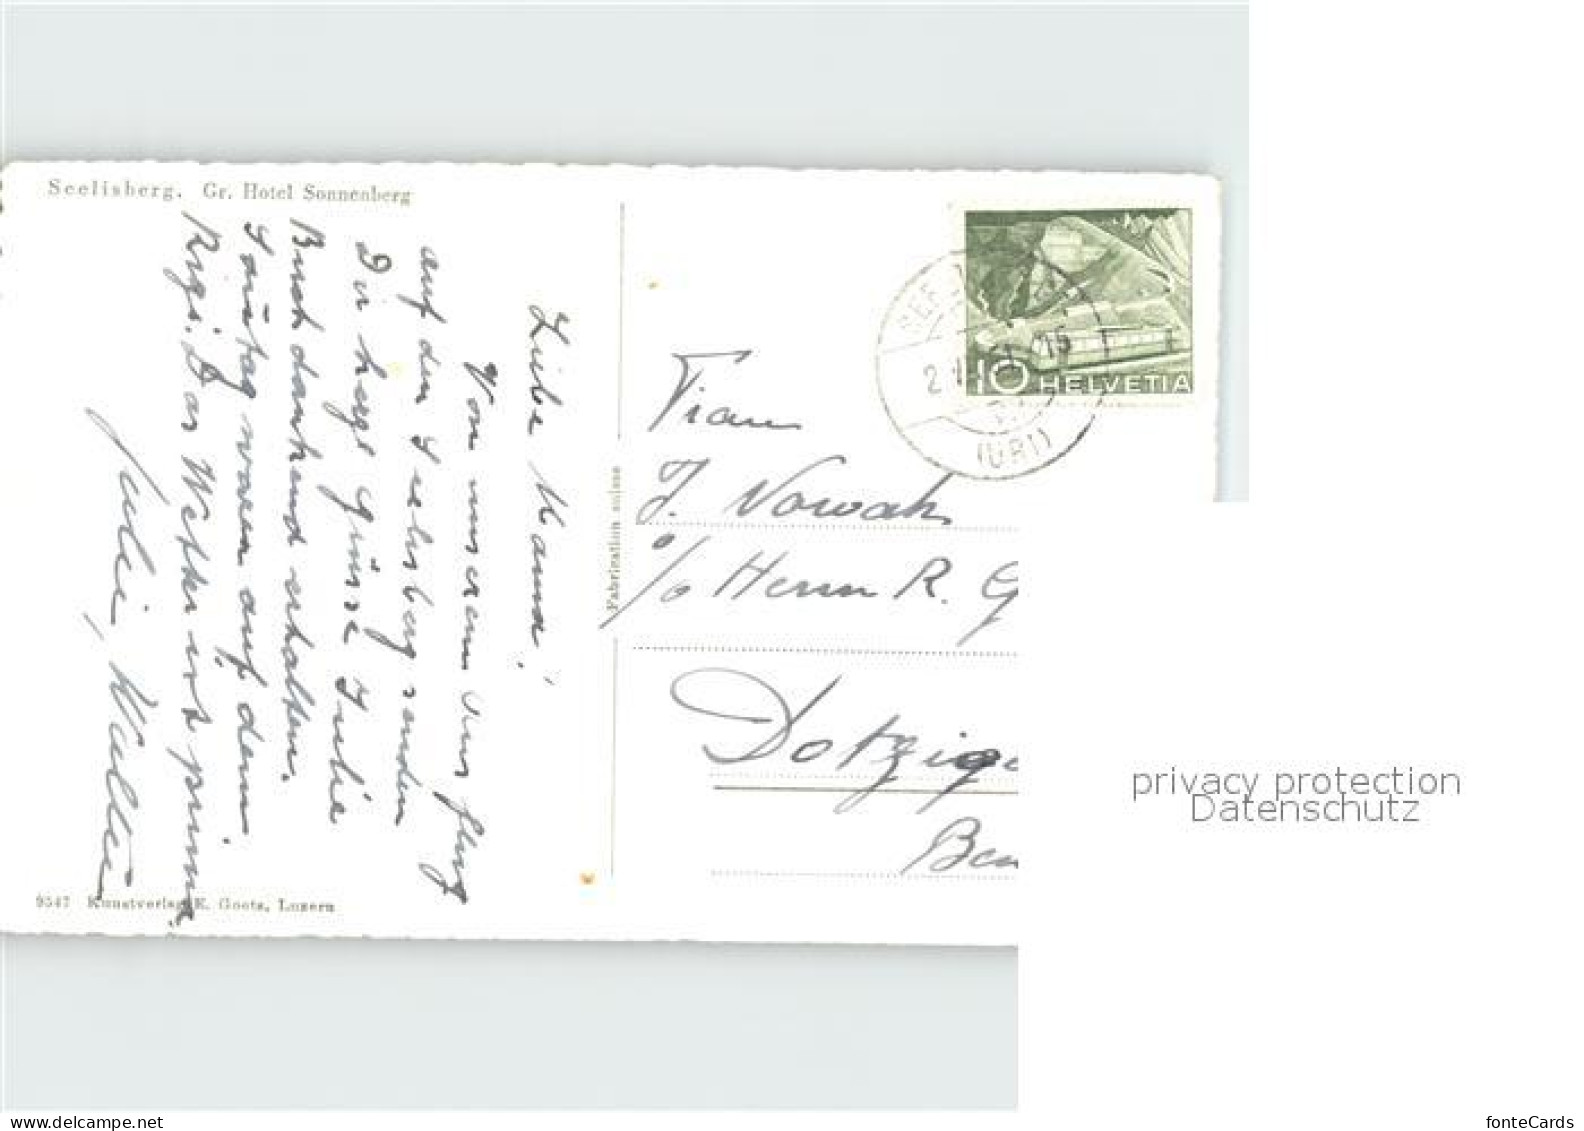 Seelisberg. Gr. Hotel Sonnenberg
Liebe Mama!
Von unserem Ausflug
auf den Seelisberg senden
Dir herzl Grüsse Julie
Buch dankend erhalten.
Sonntag waren auf dem
Rigi. Das Wetter ist prima
Julie, Walter
9547 Kunstverlag E. Goetz, Luzern
Fabrication suisse
10 HELVETIA
(URI)
Frau
J. Nowak
c/o Herrn R. G
Dotzige
Ber
privacy protection
Datenschutz
www.delcampe.net
fonteCards